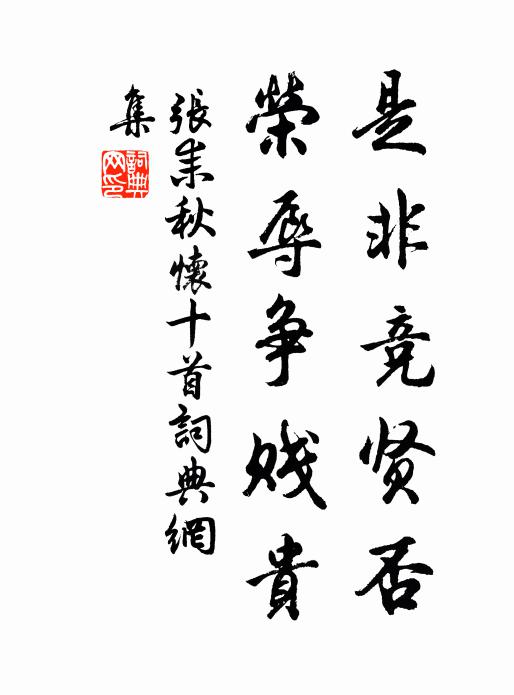 是非竞贤否
榮辱争贱貴
張耒秋懷十首詞典網
集
詞典
网印